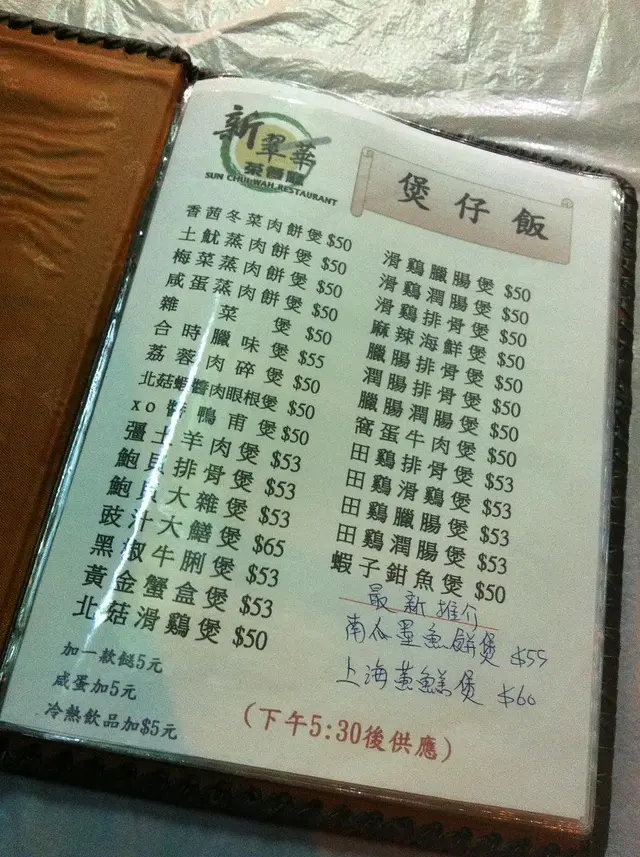 新翠華
茶餐廳
SUN CHUI WAH RESTAURANT
煲仔飯
香茜冬菜肉餅煲 $50
土魷蒸肉餅煲 $50
梅菜蒸肉餅煲 $50
咸蛋蒸肉餅煲 $50
雜菜煲 $50
合時臘味煲 $55
荔蓉肉碎煲 $50
北菇蝦醬肉眼根煲 $50
xo醬鴨甫煲 $50
彊土羊肉煲 $53
鮑貝排骨煲 $53
鮑貝大雜煲 $53
豉汁大鱔煲 $65
黑椒牛脷煲 $53
黃金蟹盒煲 $53
北菇滑鷄煲 $50
加一款餸5元
咸蛋加5元
冷熱飲品加$5元
滑鷄臘腸煲 $50
滑鷄潤腸煲 $50
滑鷄排骨煲 $50
麻辣海鮮煲 $50
臘腸排骨煲 $50
潤腸排骨煲 $50
臘腸潤腸煲 $50
窩蛋牛肉煲 $50
田鷄排骨煲 $53
田鷄滑鷄煲 $53
田鷄臘腸煲 $53
田鷄潤腸煲 $53
蝦子鉗魚煲 $50
最新推介
南瓜墨魚餅煲 $55
上海黃鱔煲 $60
(下午5:30後供應)